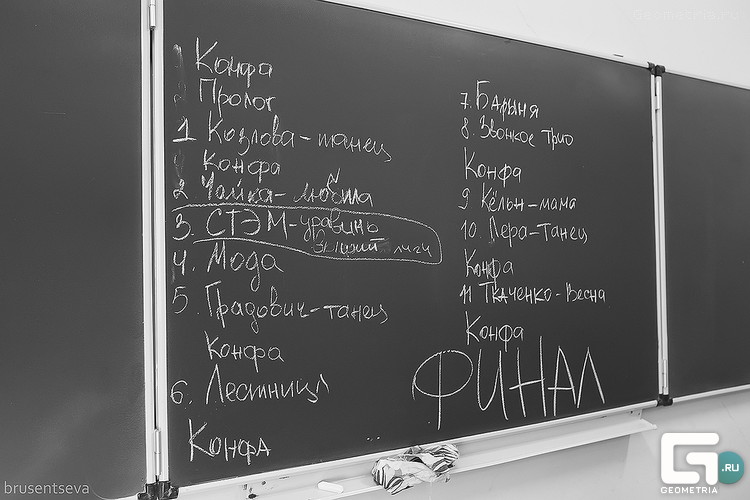 Конфа
Пролог
1 Козлова-танец
Конфа
2 Чайка-любила
3. СТЭМ-уравинь
высший лиги
4. Мода
5. Градович-танец
Конфа
6. Лестница
Конфа
7. Барыня
8. Звонкое трио
Конфа
9 Кёльн-мама
10. Лера-танец
Конфа
11 Ткаченко-Весна
Конфа
ФИНАЛ
brusentseva
G .RU
GEOMETRIA